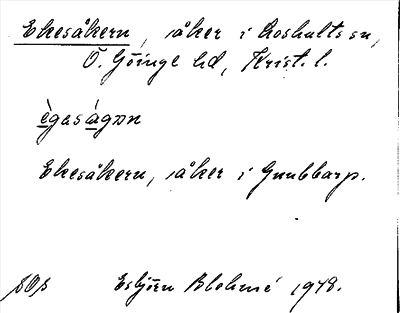 Ekesåkern, åker i Loshults sn,
Ö. Göinge hd, Krist. l.
ègasàgɒn
Ekesåkern, åker i Gnubbarp.
Esbjörn Blohmé 1948.